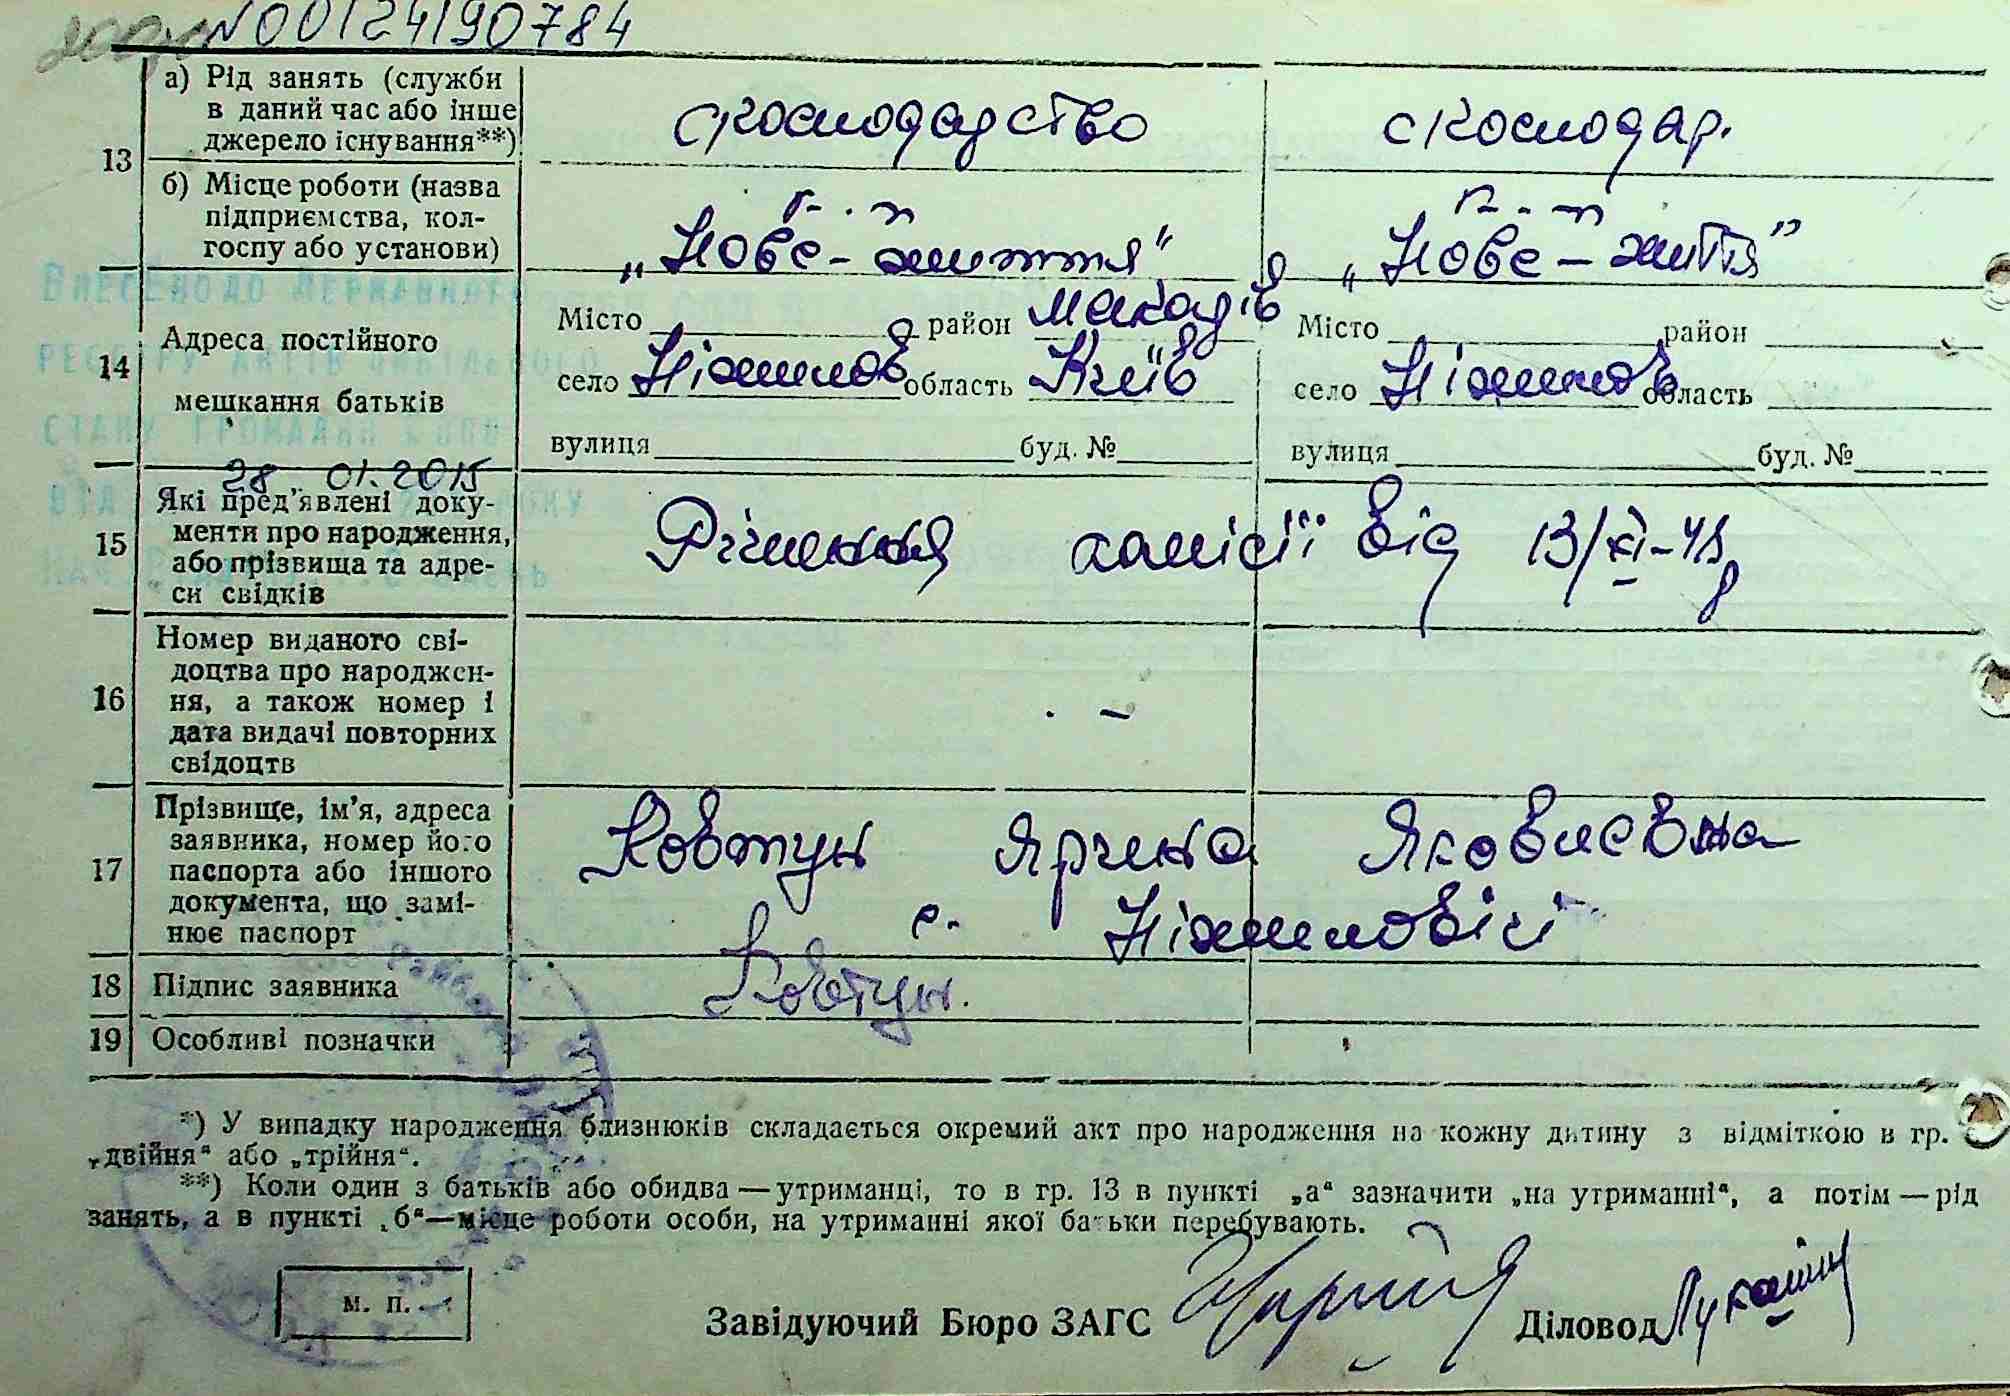 N00124190784
13
а) Рід занять (служби
в даний час або інше
джерело існування**)
с/господарство
с/господар.
б) Місце роботи (назва
підприємства, кол-
госпу або установи)
к-т
„Нове-життя"
к-т
„Нове-життя"
14
Адреса постійного
мешкання батьків
Місто район Макарів
село Ніжилов область Київ
вулиця буд. №
Місто район
село Ніжилов область
вулиця буд. №
Внесено до Державного
реєстру актів цивільного
стану громадян
28. 01.2015
15
Які пред'явлені доку-
менти про народження,
або прізвища та адре-
си свідків
Рішення комісії від 13/XI-48р
16
Номер виданого сві-
доцтва про народжен-
ня, а також номер і
дата видачі повторних
свідоцтв
-
17
Прізвище, ім'я, адреса
заявника, номер його
паспорта або іншого
документа, що замі-
нює паспорт
Ковтун Ярина Яковлевна
с. Ніжиловічі
18
Підпис заявника
Ковтун.
19
Особливі позначки
*) У випадку народження близнюків складається окремий акт про народження на кожну дитину з відміткою в гр.
„двійня" або „трійня".
**) Коли один з батьків або обидва—утриманці, то в гр. 13 в пункті „а" зазначити „на утриманні", а потім—рід
занять, а в пункті „б"—місце роботи особи, на утриманні якої батьки перебувають.
м. п.
Завідуючий Бюро ЗАГС
Діловод